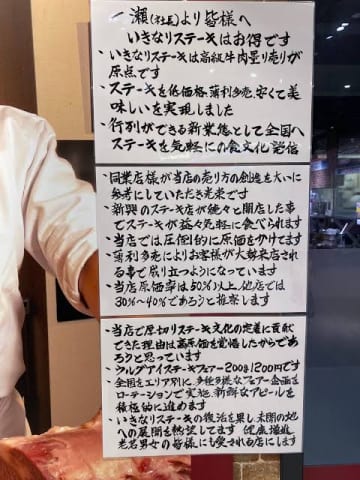 一瀬(社長)より皆様へ
いきなりステーキはお得です
・いきなりステーキは高級牛肉量り売りが
原点です
・ステーキを低価格薄利多売、安くて美
味しいを実現しました
・行列ができる新業態として全国へ
ステーキを気軽にの食文化発信
・同業店様が当店の売り方の創造を大いに
参考にしていただき光栄です
・新興のステーキ店が続々と開店した事
でステーキが益々気軽に食べられます
・当店では圧倒的に原価をかけてます
・薄利多売によりお客様が大勢来店され
る事で成り立つようになっています
・当店原価率は50%以上、他店では
30%~40%であろうと推察します
・当店で厚切りステーキ文化の定着に貢献
できた理由は高原価を覚悟したからであ
ろうと思っています
・ワイルドアイステーキフェアー200g1200円です
・全国をエリア別に、多種多様なフェアー企画を
ローテーションで実施、新鮮なアピールを
積極的に進めます
・いきなりステーキの復活を果し未開の地
への展開を熱望してます 健康増進
老若男女の皆様にも愛される店にします